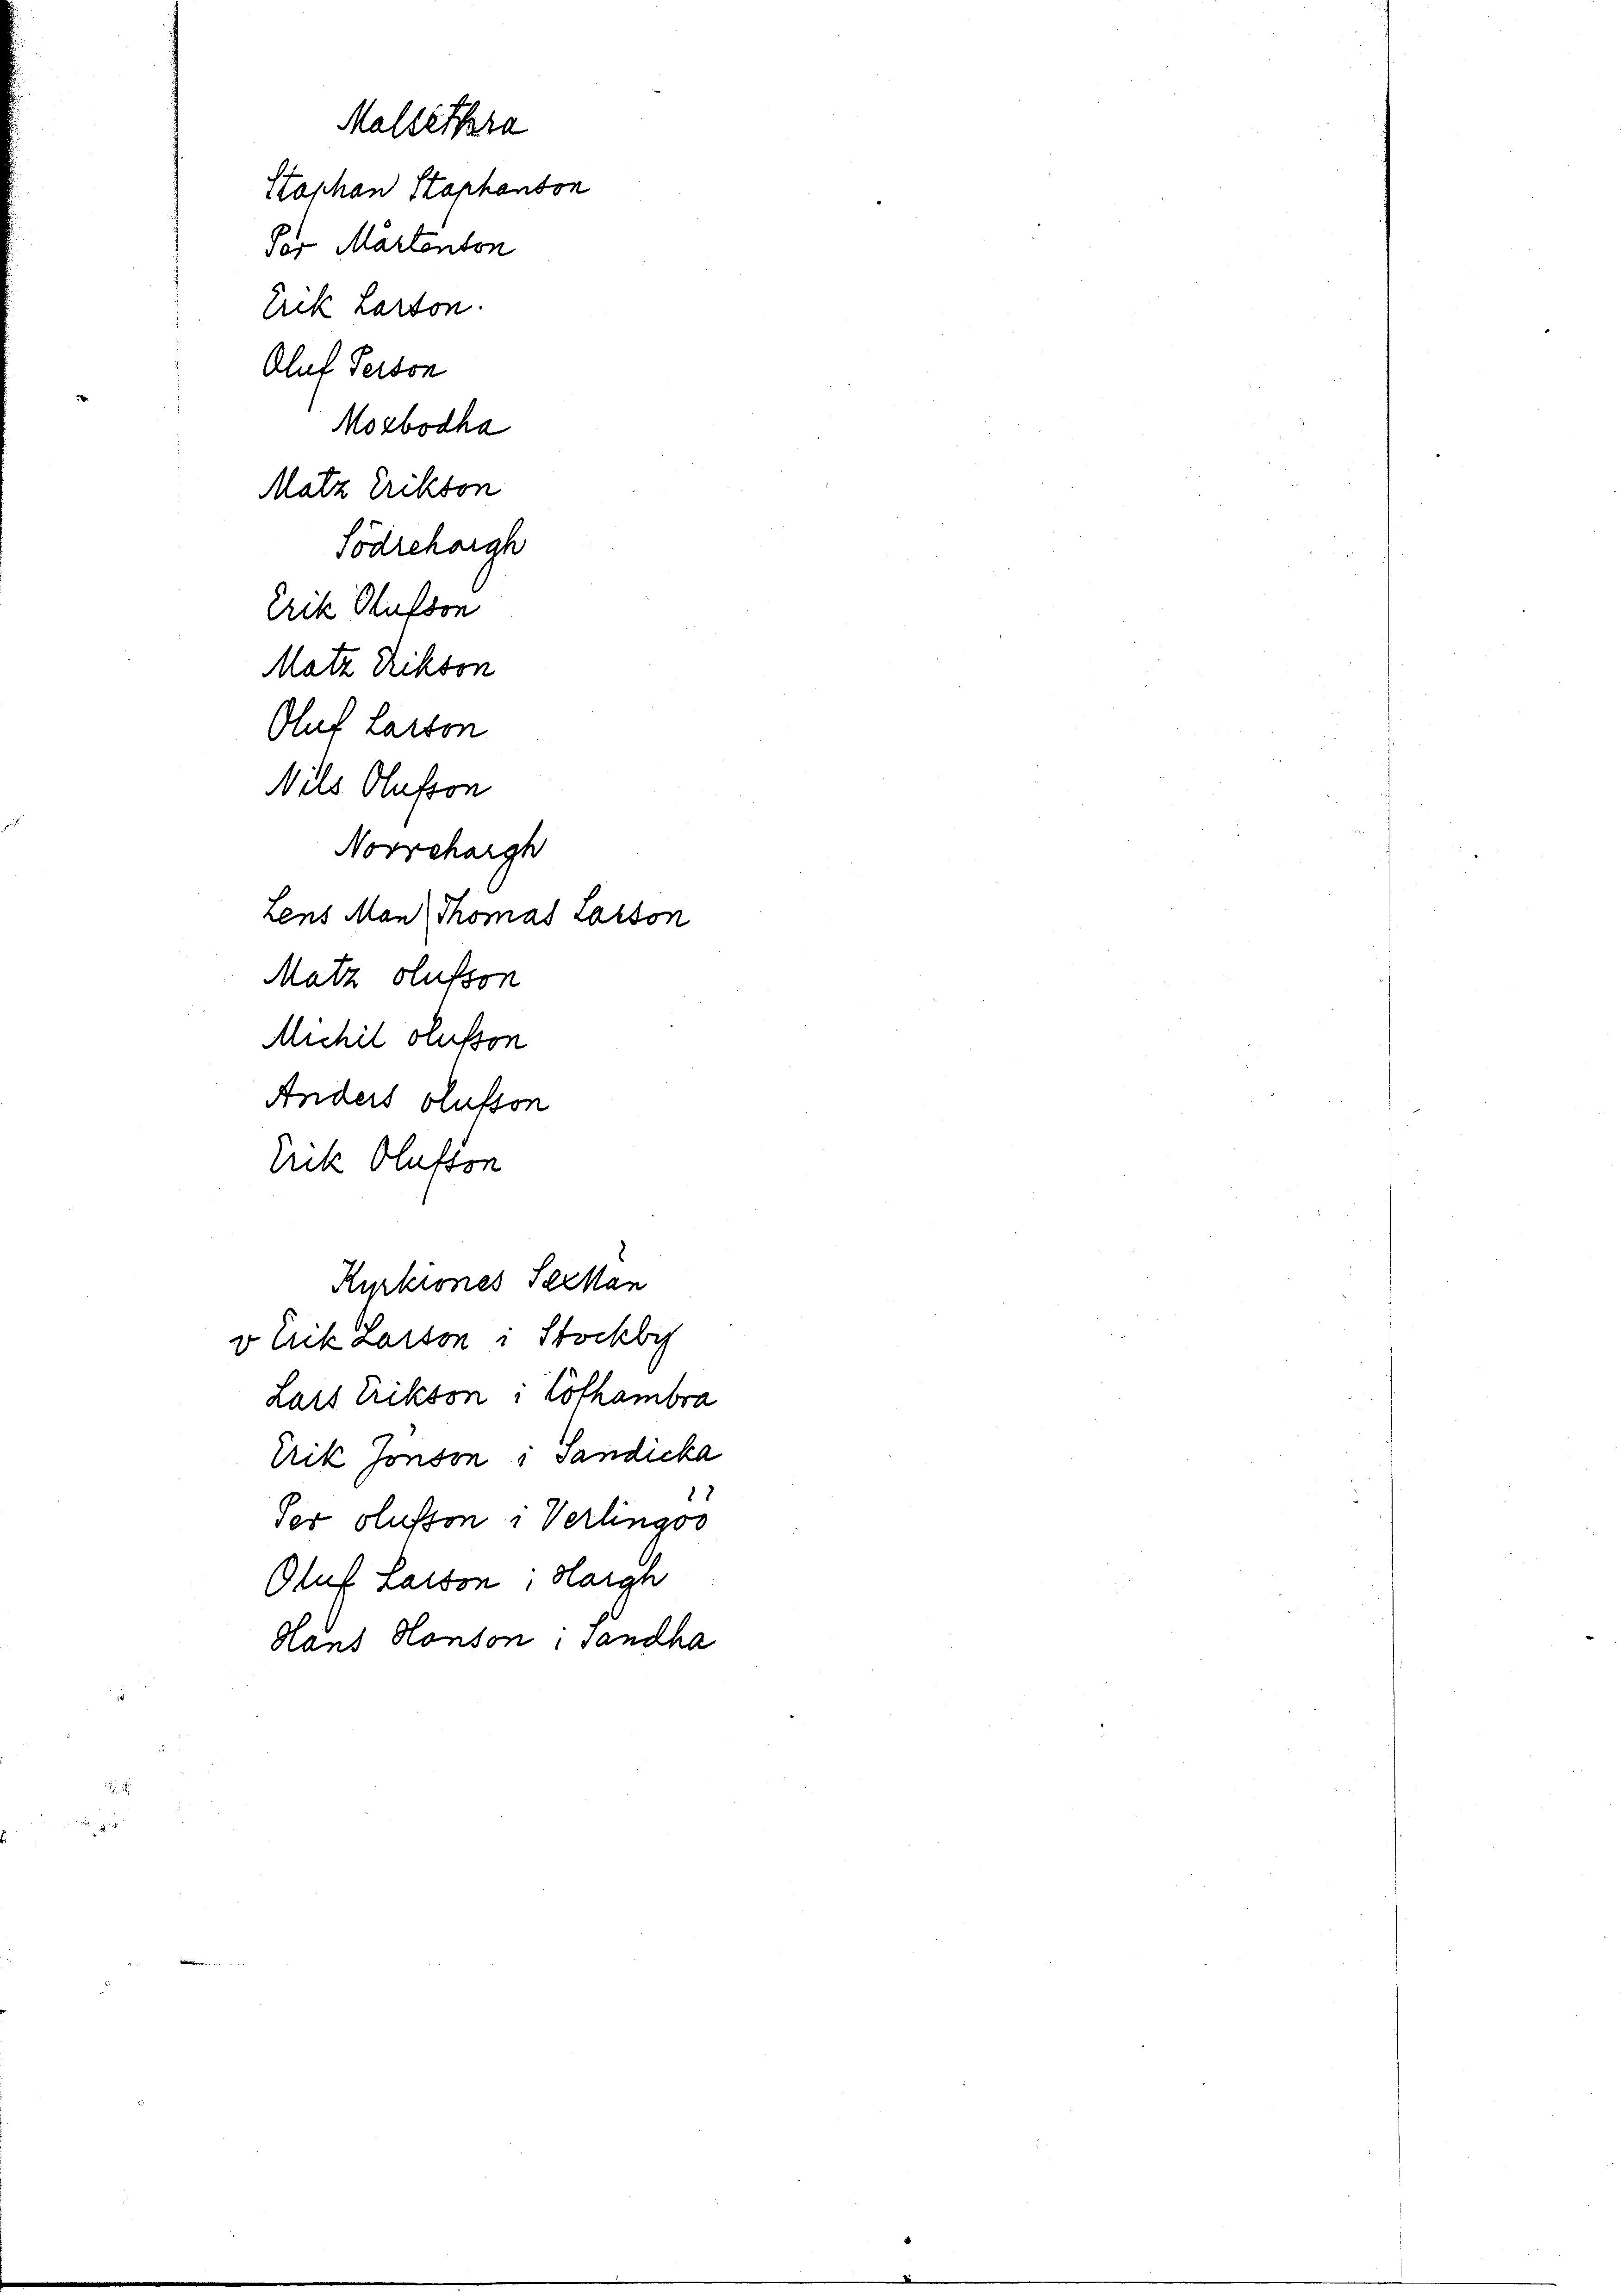 Malsethra
Staphan Staphanson
Per Mårtenson
Erik Larson.
Oluf Person
Morbodha
Matz Erikson
Södrehargh
Erik Olufson
Matz Erikson
Oluf Larson
Nils Olufson
Norrehargh
Lens Man Thomas Larson
Matz olufson
Michil olufson
Anders olufson
Erik Olufson
Kyrkiones Sexman
v Erik Larson i Stockby
Lars Erikson i Löfhambra
Erik Jönson i Sandicka
Per olufson i Verlingöö
Oluf Larson i Hargh
Hans Honson i Sandha